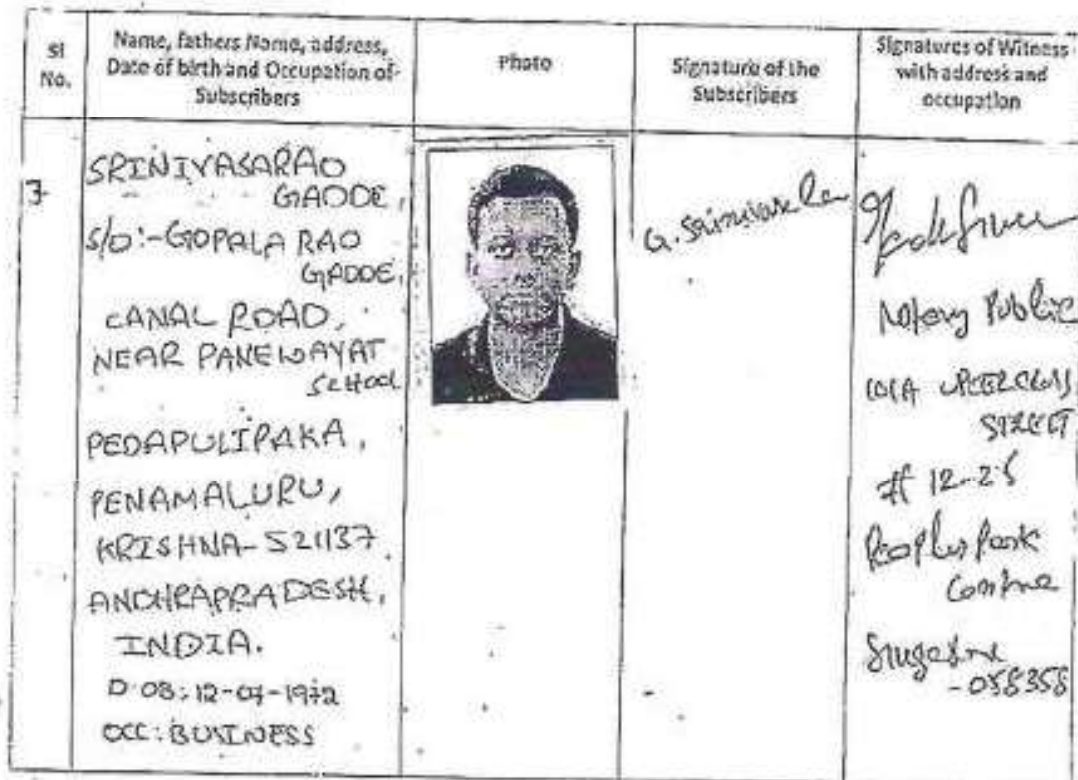 Sl
No.
Name, fathers Name, address,
Date of birth and Occupation of
Subscribers
Photo
Signature of the
Subscribers
Signatures of Witness
with address and
occupation
3
SRINIVASARAO
GADDE,
S/O:-GOPALA RAO
GADDE,
CANAL ROAD,
NEAR
SCHOOL
PEDAPULIPAKA,
PENAMALURU,
KRISHNA-521137
ANDHRAPRADESH,
INDIA.
DOB:
OCC: BUSINESS
G. Srinivasa Rao
Notary Public
STREET
Park
Singapore
-058358